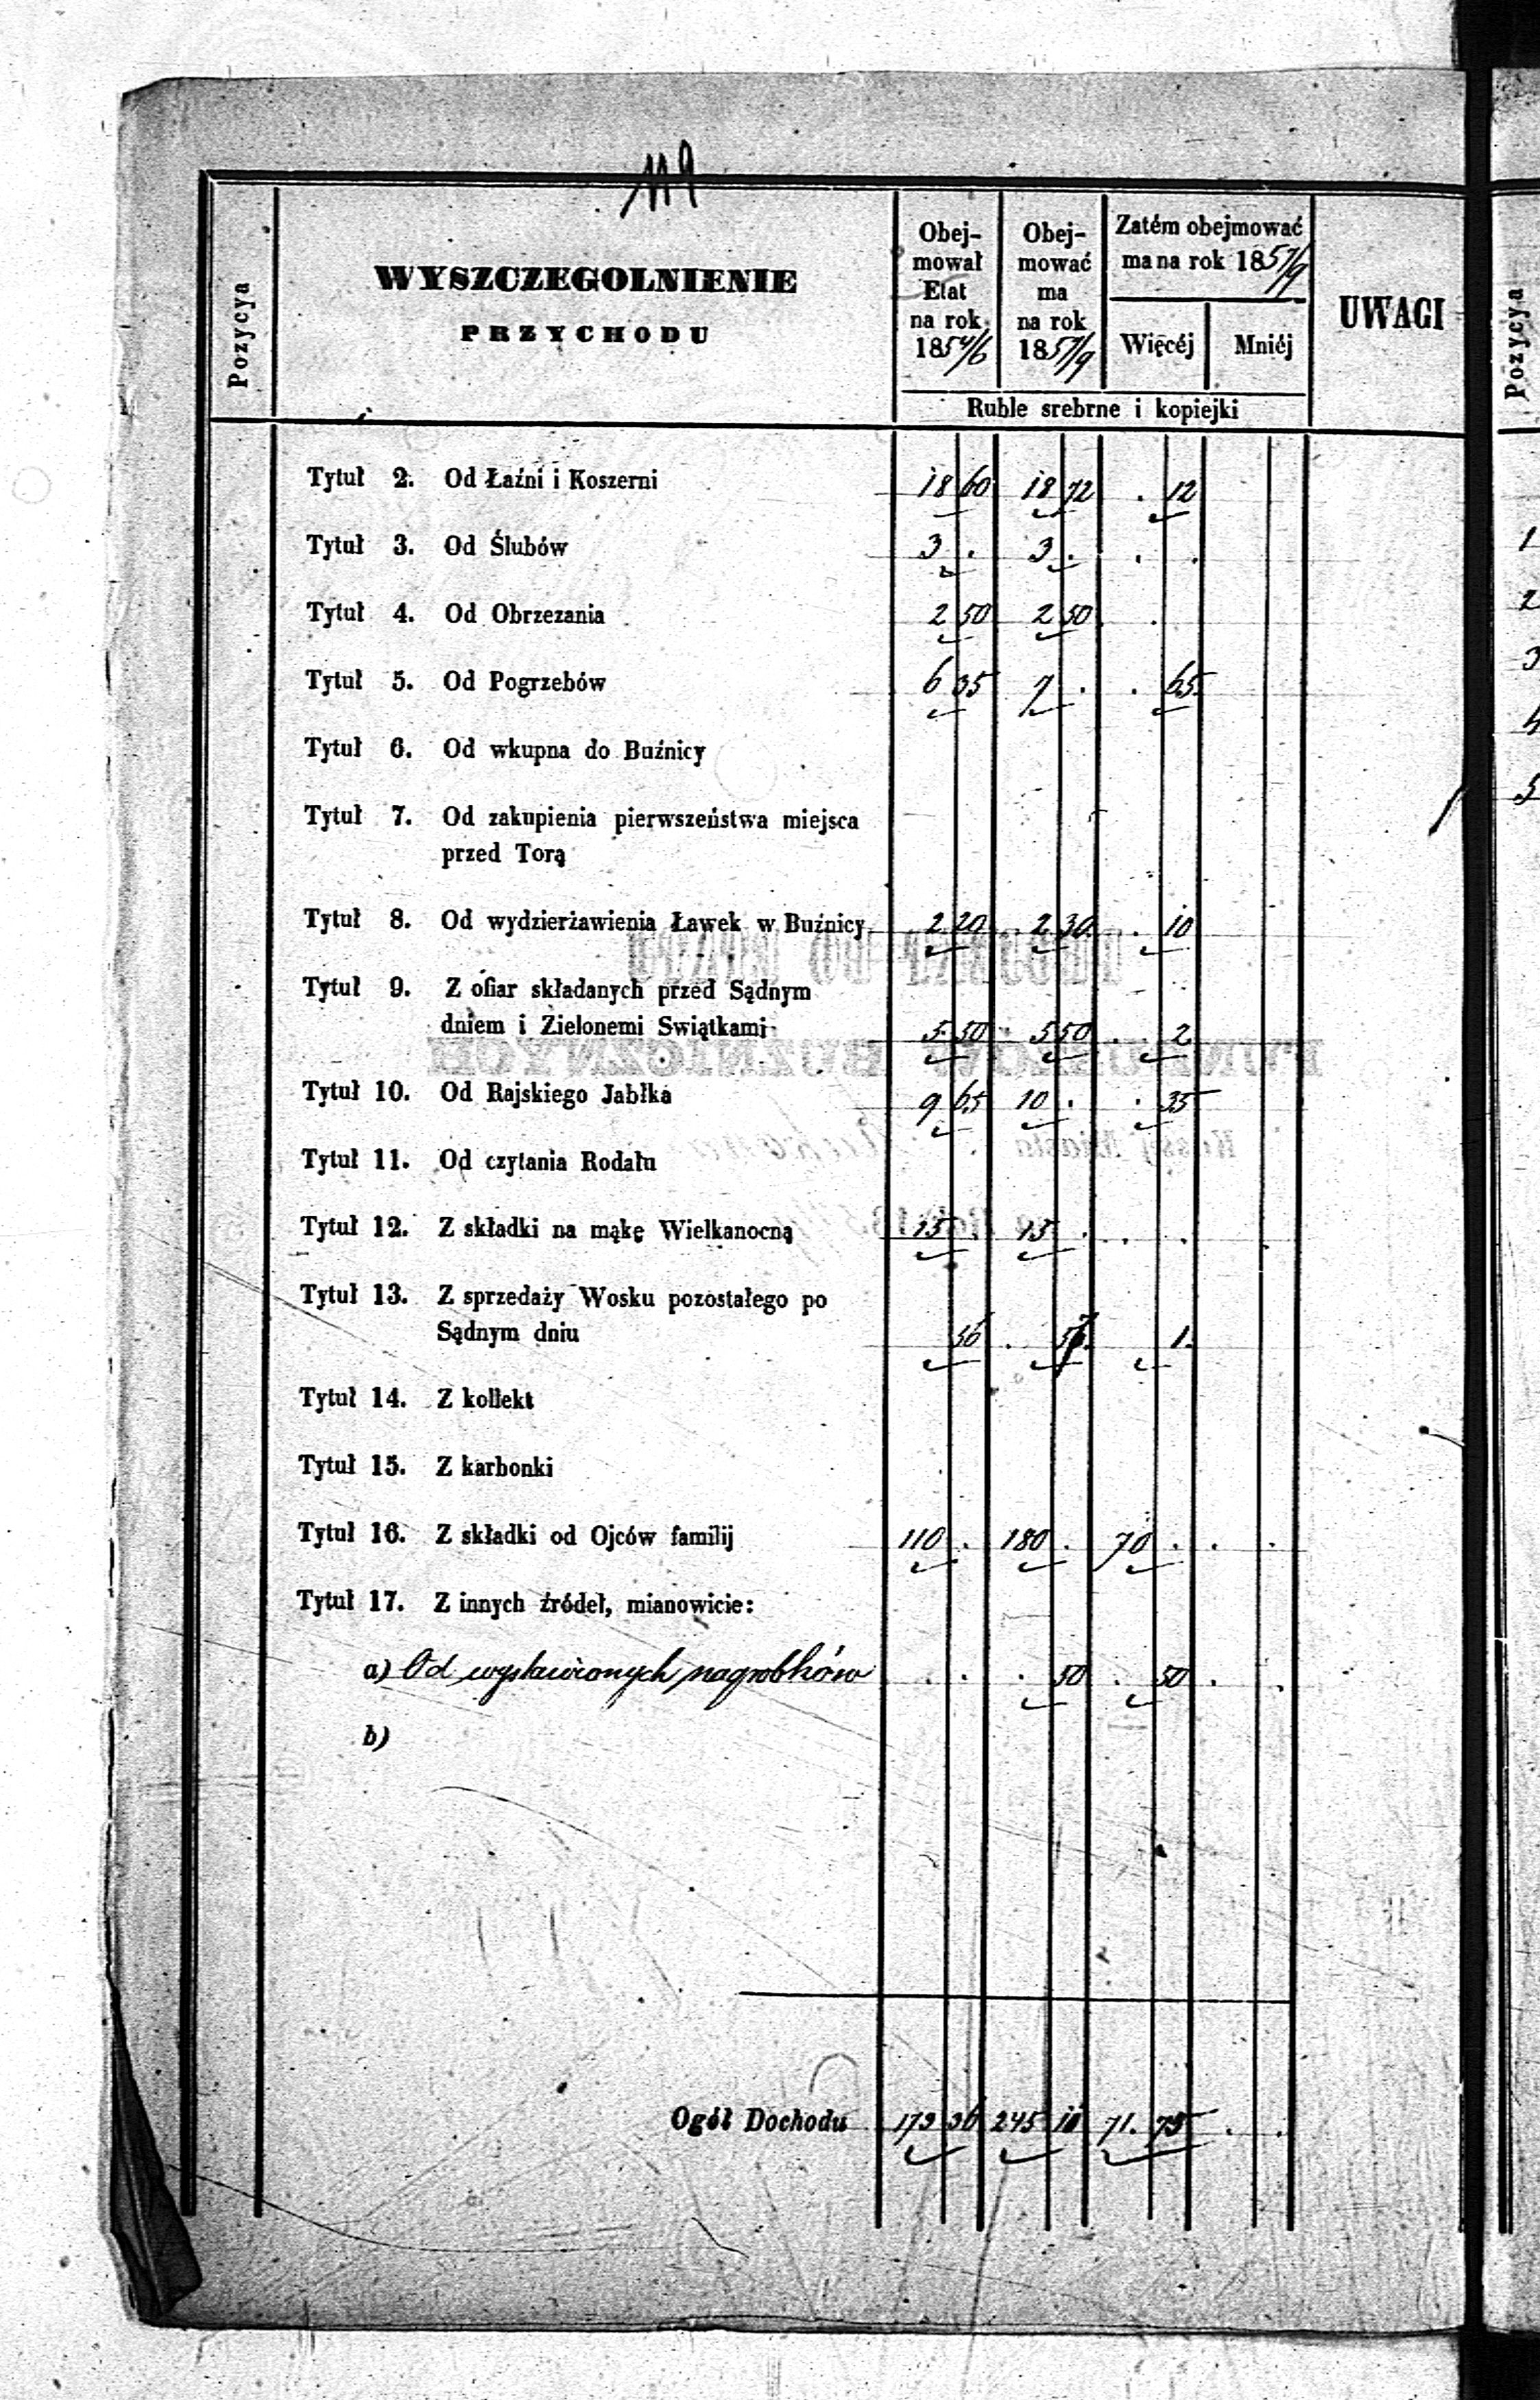 119
Pozycya
WYSZCZEGOLNIENIE
PRZYCHODU
Obej-
mował
Etat
na rok
1854/6
Obej-
mować
ma
na rok
1857/9
Zatém obejmować
ma na rok 1857/9
Więcéj
Mniéj
Ruble srebrne i kopiejki
UWAGI
Pozycya
Tytuł 2. Od Łaźni i Koszerni 18 60 18 72 . 12
Tytuł 3. Od Ślubów 3 . 3 . . .
Tytuł 4. Od Obrzezania 2 50 2 50 .
Tytuł 5. Od Pogrzebów 6 35 7 . . 65
Tytuł 6. Od wkupna do Buźnicy
Tytuł 7. Od zakupienia pierwszeństwa miejsca
przed Torą
Tytuł 8. Od wydzierżawienia Ławek w Buźnicy 2 20 2 30 . 10
Tytuł 9. Z ofiar składanych przed Sądnym
dniem i Zielonemi Swiątkami 5 50 5 50 . 2
Tytuł 10. Od Rajskiego Jabłka 9 65 10 . . 35
Tytuł 11. Od czytania Rodału
Tytuł 12. Z składki na mąkę Wielkanocną 15 . 15 . . .
Tytuł 13. Z sprzedaży Wosku pozostałego po
Sądnym dniu 56 . 57 1.
Tytuł 14. Z kollekt
Tytuł 15. Z karbonki
Tytuł 16. Z składki od Ojców familij 110 . 180 . 70 . . .
Tytuł 17. Z innych źródeł, mianowicie:
a) Od wystawionych nagrobków . . . 50 . 50 . .
b)
Ogół Dochodu 173 36 245 11 71. 75 . .
1
2
3
4
5